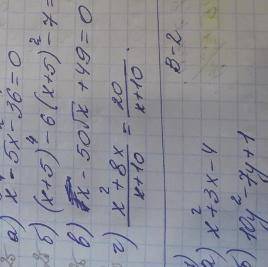 а) x⁴ - 5x² - 36 = 0
б) (x+5)⁴ - 6(x+5)² - 7 =
в) x - 50√x + 49 = 0
г) x² + 8x / x + 10 = 20 / x + 10.
В-2
а) x² + 3x - 4
б) 10y² - 7y + 1